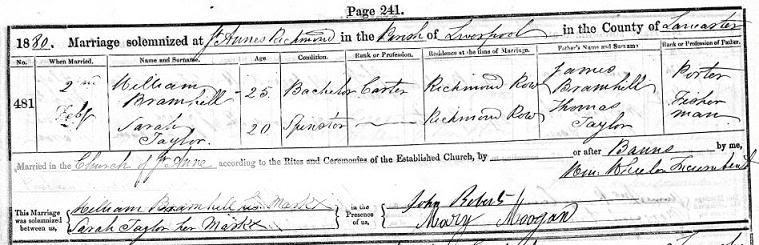 Page 241.
1880. Marriage solemnized at St Annes Richmond in the Parish of Liverpool in the County of Lancaster
No. When Married. Name and Surname. Age Condition. Rank or Profession. Residence at the time of Marriage. Father's Name and Surname. Rank or Profession of Father.
481 2nd Feby William Bramhill 25 Bachelor Carter Richmond Row James Bramhill Porter
Sarah Taylor 20 Spinster — Richmond Row Thomas Taylor Fisherman
Married in the Church of St Anne according to the Rites and Ceremonies of the Established Church, by or after Banns by me,
Wm. Incumbent
This Marriage was solemnized between us, William Bramhill his Mark X in the Presence of us, John Roberts
Sarah Taylor her Mark X Mary Moogan